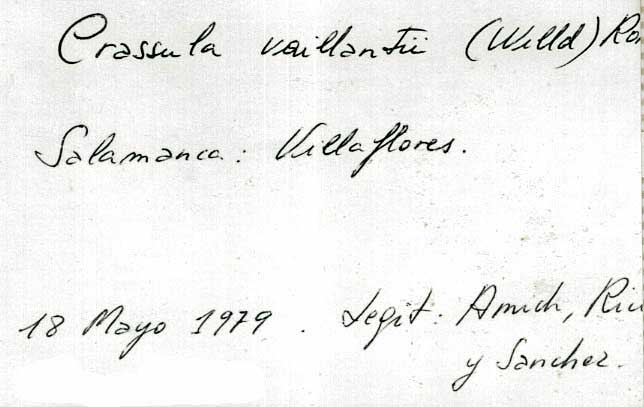 Crassula vaillantii (Willd) Ro
Salamanca: Villaflores.
18 Mayo 1979. Legit: Amich, Ric
y Sanchez.